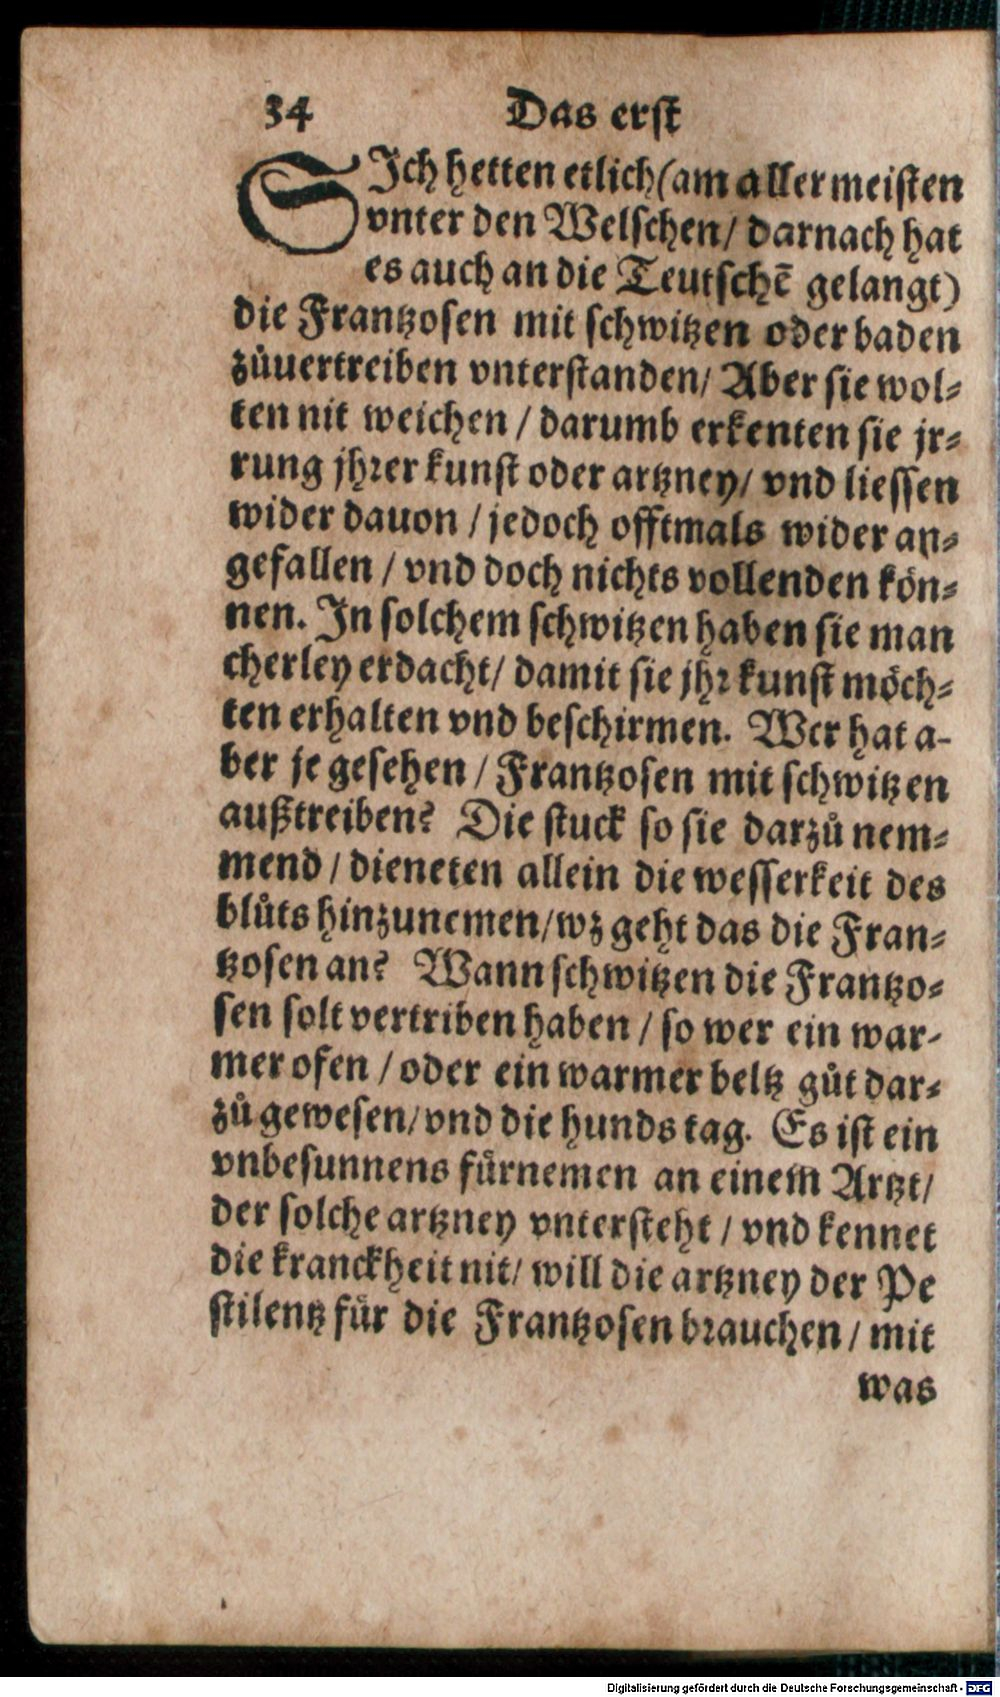 34 Das erst
SIch hetten etlich (am aller meisten
vnter den Welschen / darnach hat
es auch an die Teutschē gelangt)
die Frantzosen mit schwitzen oder baden
zůuertreiben vnterstanden / Aber sie wol⸗
ten nit weichen / darumb erkenten sie jr⸗
rung jhrer kunst oder artzney / vnd liessen
wider dauon / jedoch offtmals wider an⸗
gefallen / vnd doch nichts vollenden kön⸗
nen. In solchem schwitzen haben sie man
cherley erdacht / damit sie jhr kunst möch⸗
ten erhalten vnd beschirmen. Wer hat a-
ber je gesehen / Frantzosen mit schwitzen
außtreiben? Die stuck so sie darzů nem⸗
mend / dieneten allein die wesserkeit des
blůts hinzunemen / wz geht das die Fran⸗
tzosen an? Wann schwitzen die Frantzo⸗
sen solt vertriben haben / so wer ein war-
mer ofen / oder ein warmer beltz gůt dar⸗
zů gewesen / vnd die hunds tag. Es ist ein
vnbesunnens fürnemen an einem Artzt /
der solche artzney vntersteht / vnd kennet
die kranckheit nit / will die artzney der Pe
stilentz für die Frantzosen brauchen / mit
was
Digitalisierung gefördert durch die Deutsche Forschungsgemeinschaft - DFG